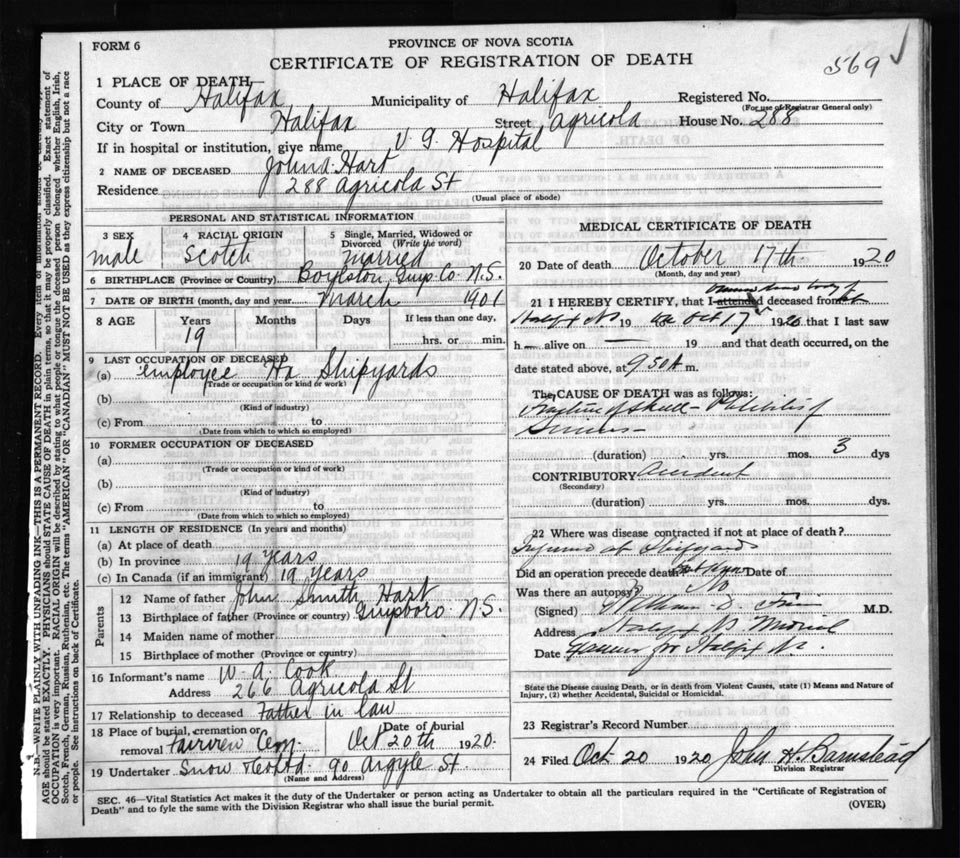 FORM 6
PROVINCE OF NOVA SCOTIA
CERTIFICATE OF REGISTRATION OF DEATH
569
1 PLACE OF DEATH
County of Halifax Municipality of Halifax Registered No.
(For use of Registrar General only)
City or Town Halifax Street Agricola House No. 288
If in hospital or institution, give name V. G. Hospital
2 NAME OF DECEASED John A. Hart
Residence 288 Agricola St
(Usual place of abode)
PERSONAL AND STATISTICAL INFORMATION
3 SEX 4 RACIAL ORIGIN 5 Single, Married, Widowed or Divorced (Write the word)
male Scotch married
6 BIRTHPLACE (Province or Country) Boylston, Guys. Co. N.S.
7 DATE OF BIRTH (month, day and year) March 1901
8 AGE Years Months Days If less than one day,
19 hrs. or min.
9 LAST OCCUPATION OF DECEASED
(a) employee Hx Shipyards
(Trade or occupation or kind of work)
(b)
(Kind of industry)
(c) From to
(Date from which to which so employed)
10 FORMER OCCUPATION OF DECEASED
(a)
(Trade or occupation or kind of work)
(b)
(Kind of industry)
(c) From to
(Date from which to which so employed)
11 LENGTH OF RESIDENCE (In years and months)
(a) At place of death
(b) In province 19 years
(c) In Canada (if an immigrant) 19 years
Parents
12 Name of father John Smith Hart
13 Birthplace of father (Province or country) Guysboro N.S.
14 Maiden name of mother
15 Birthplace of mother (Province or country)
16 Informant's name W. A. Cook
Address 266 Agricola St
17 Relationship to deceased Father in law
18 Place of burial, cremation or removal Fairview Cem. Date of burial Oct 20th 1920
19 Undertaker Snow & Co Ltd. 90 Argyle St.
(Name and Address)
MEDICAL CERTIFICATE OF DEATH
20 Date of death October 17th 1920
(Month, day and year)
21 I HEREBY CERTIFY, that I attended deceased from at
Halifax NS 19 on Oct 17 1920 that I last saw
h alive on 19 and that death occurred, on the
date stated above, at 9 50 A m.
The CAUSE OF DEATH was as follows:
Fracture of Skull
(duration) yrs. mos. 3 dys
CONTRIBUTORY accident
(Secondary)
(duration) yrs. mos. dys.
22 Where was disease contracted if not at place of death?
Injured at Shipyards
Did an operation precede death Date of
Was there an autopsy? No
(Signed) William D. M.D.
Address Halifax NS Medical
Date Examiner for Halifax NS.
State the Disease causing Death, or in death from Violent Causes, state (1) Means and Nature of Injury, (2) whether Accidental, Suicidal or Homicidal.
23 Registrar's Record Number
24 Filed Oct 20 1920 John H. Barnstead
Division Registrar
SEC. 46—Vital Statistics Act makes it the duty of the Undertaker or person acting as Undertaker to obtain all the particulars required in the "Certificate of Registration of
Death" and to fyle the same with the Division Registrar who shall issue the burial permit.
(OVER)
N.B.—WRITE PLAINLY WITH UNFADING INK—THIS IS A PERMANENT RECORD. Every item of information should be
AGE should be stated EXACTLY. PHYSICIANS should STATE CAUSE OF DEATH in plain terms, so that it may be properly classified. Exact statement of
OCCUPATION is very important. RACIAL ORIGIN will be described by stating to what people or tongue the deceased person belonged whether English, Irish,
Scotch, French, German, Russian, Ruthenian, etc. The terms "AMERICAN" OR "CANADIAN" MUST NOT BE USED as they express citizenship but not a race
or people. See instructions on back of Certificate.